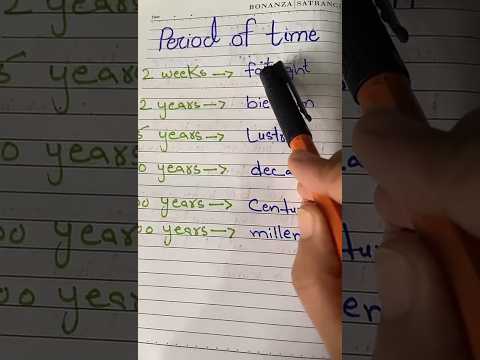 BONANZA SATRANG
Period of time
2 weeks →
2 years →
5 years → Lustr
0 years → deca
00 years → Centu
00 years → millen